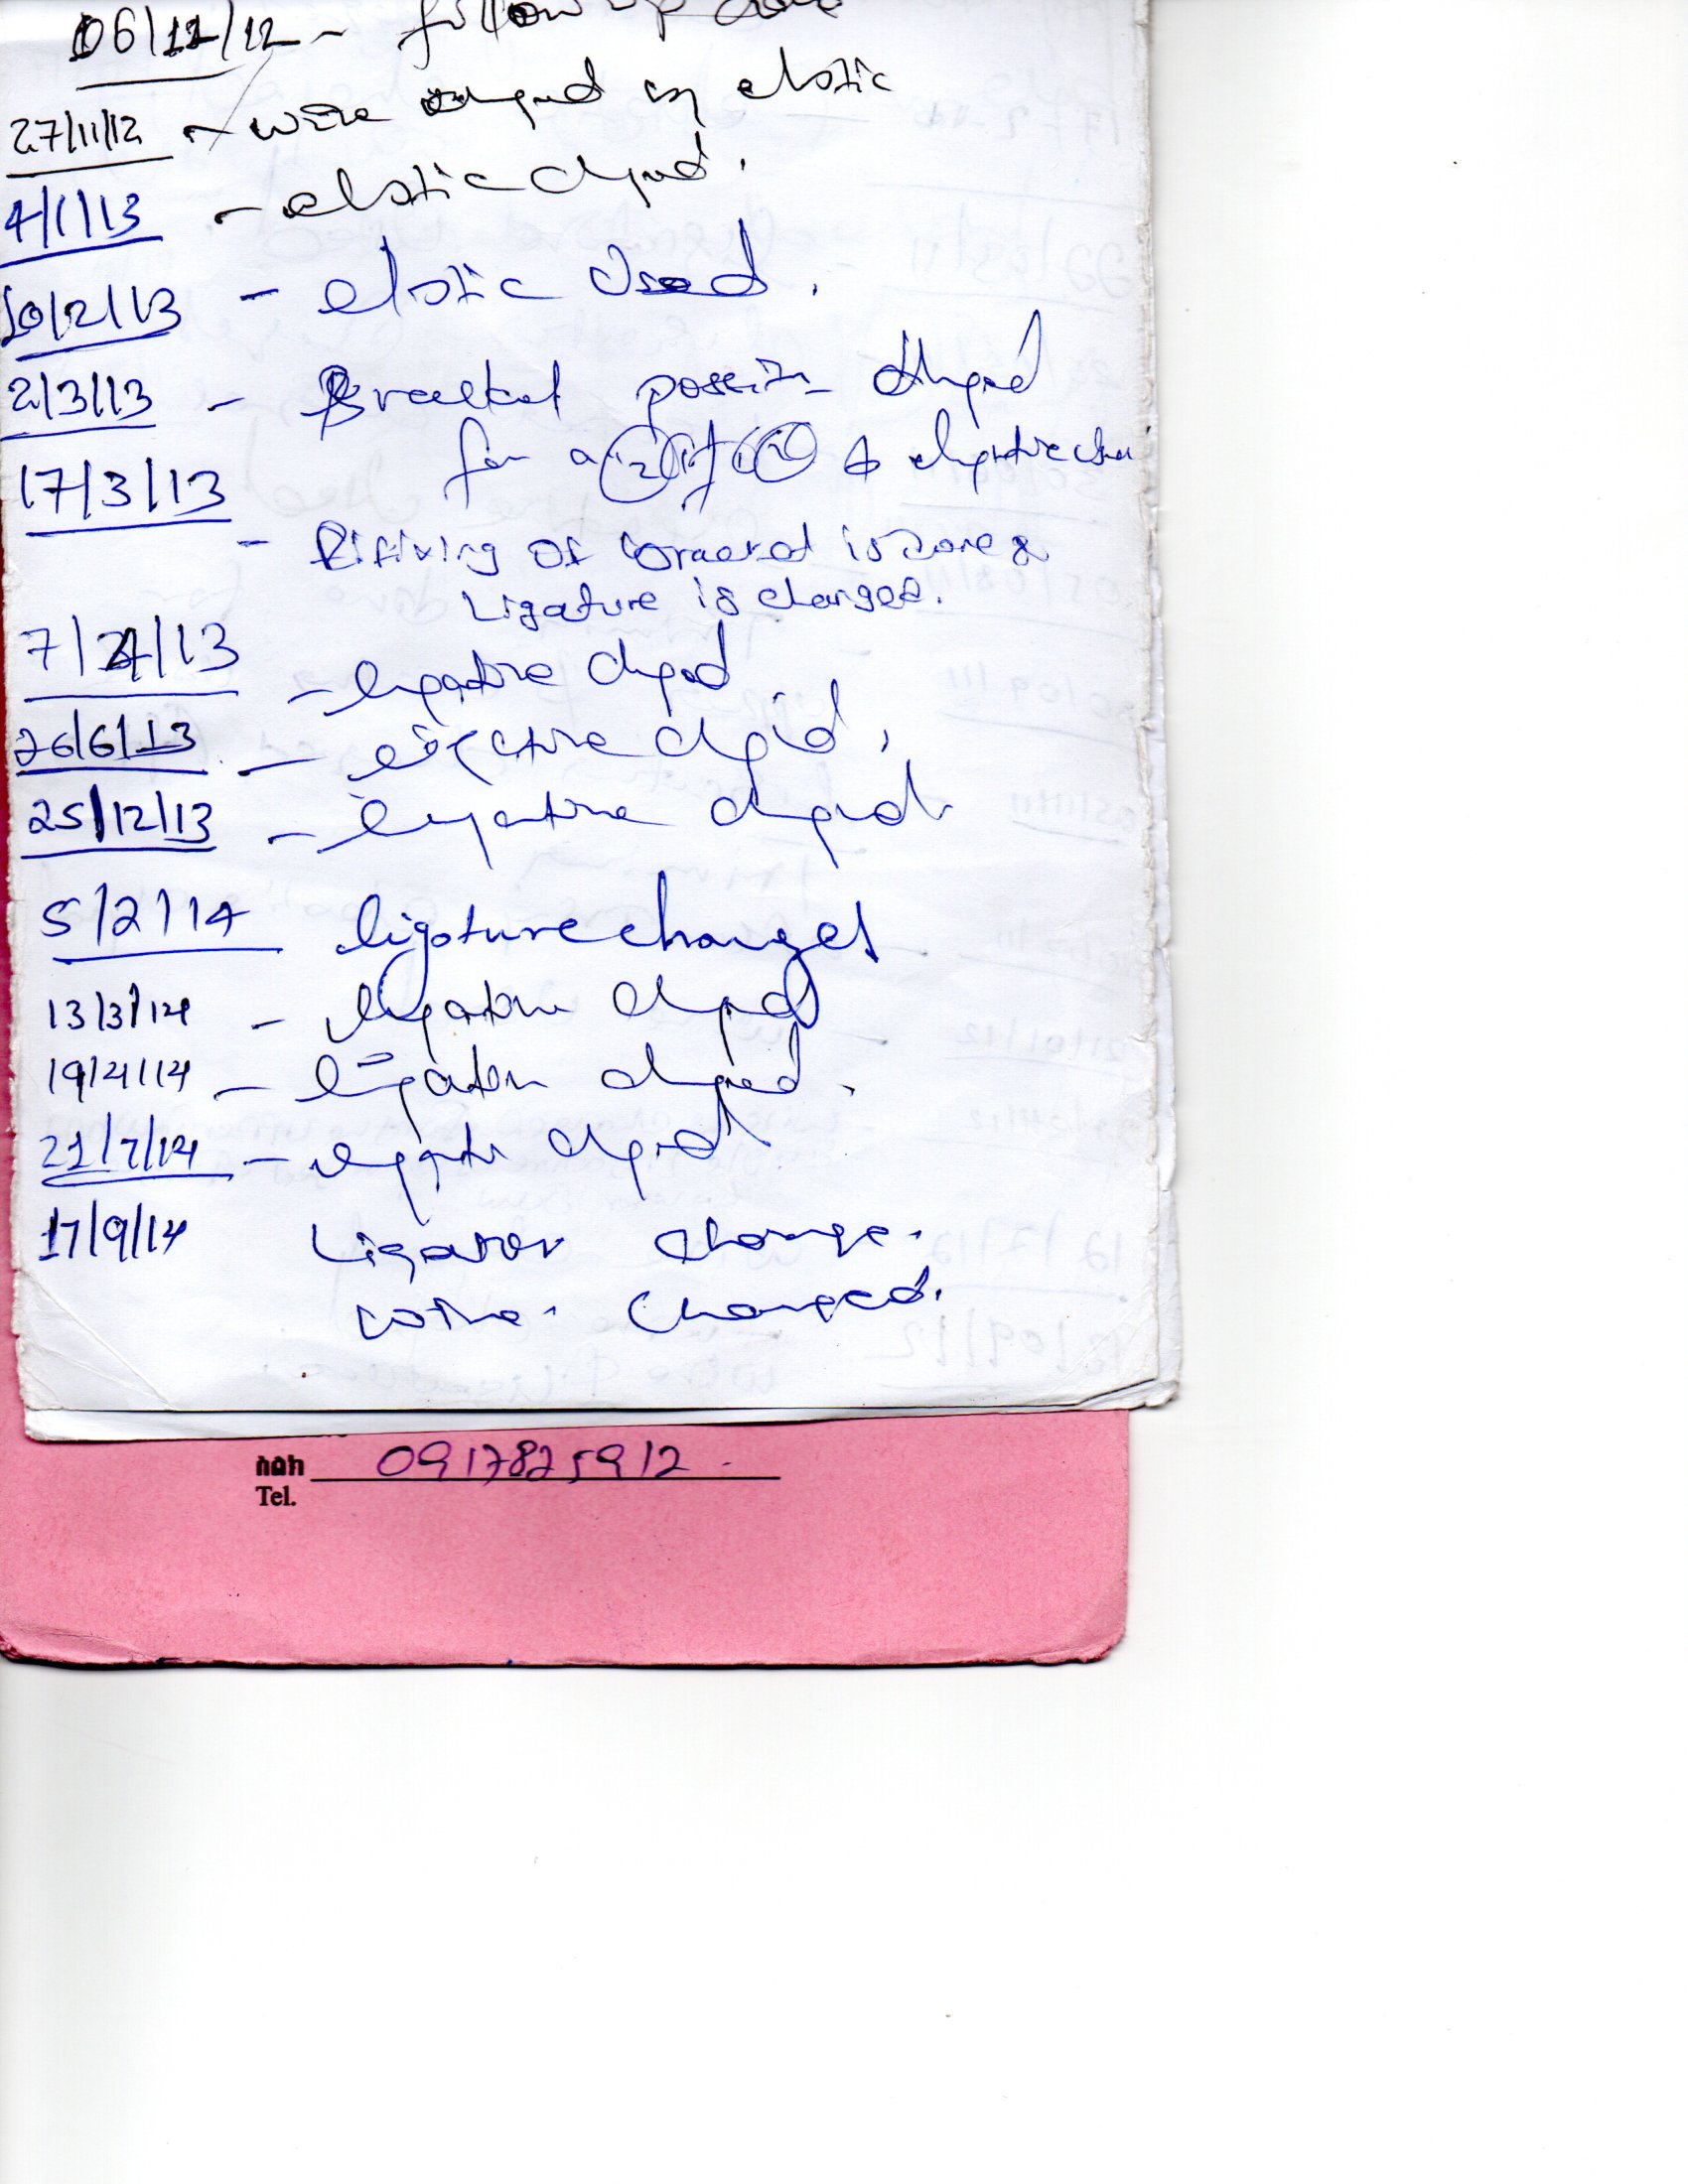 06/12/12 - follow up done
27/11/12 - wire changed by elastic
4/1/13 - elastic changed.
10/2/13 - elastic used.
2/3/13 - Bracket position changed
for & ligature
17/3/13
- Rifixing of bracket is done &
Ligature is changed.
7/4/13 - ligature changed
26/6/13 - ligature changed.
25/12/13 - ligature changed
5/2/14 ligature changed
13/3/14 - ligature changed
19/4/14 - ligature changed.
21/7/14 - ligature changed
17/9/14 Ligature change.
wire. Changed.
ስልክ 0917825912
Tel.